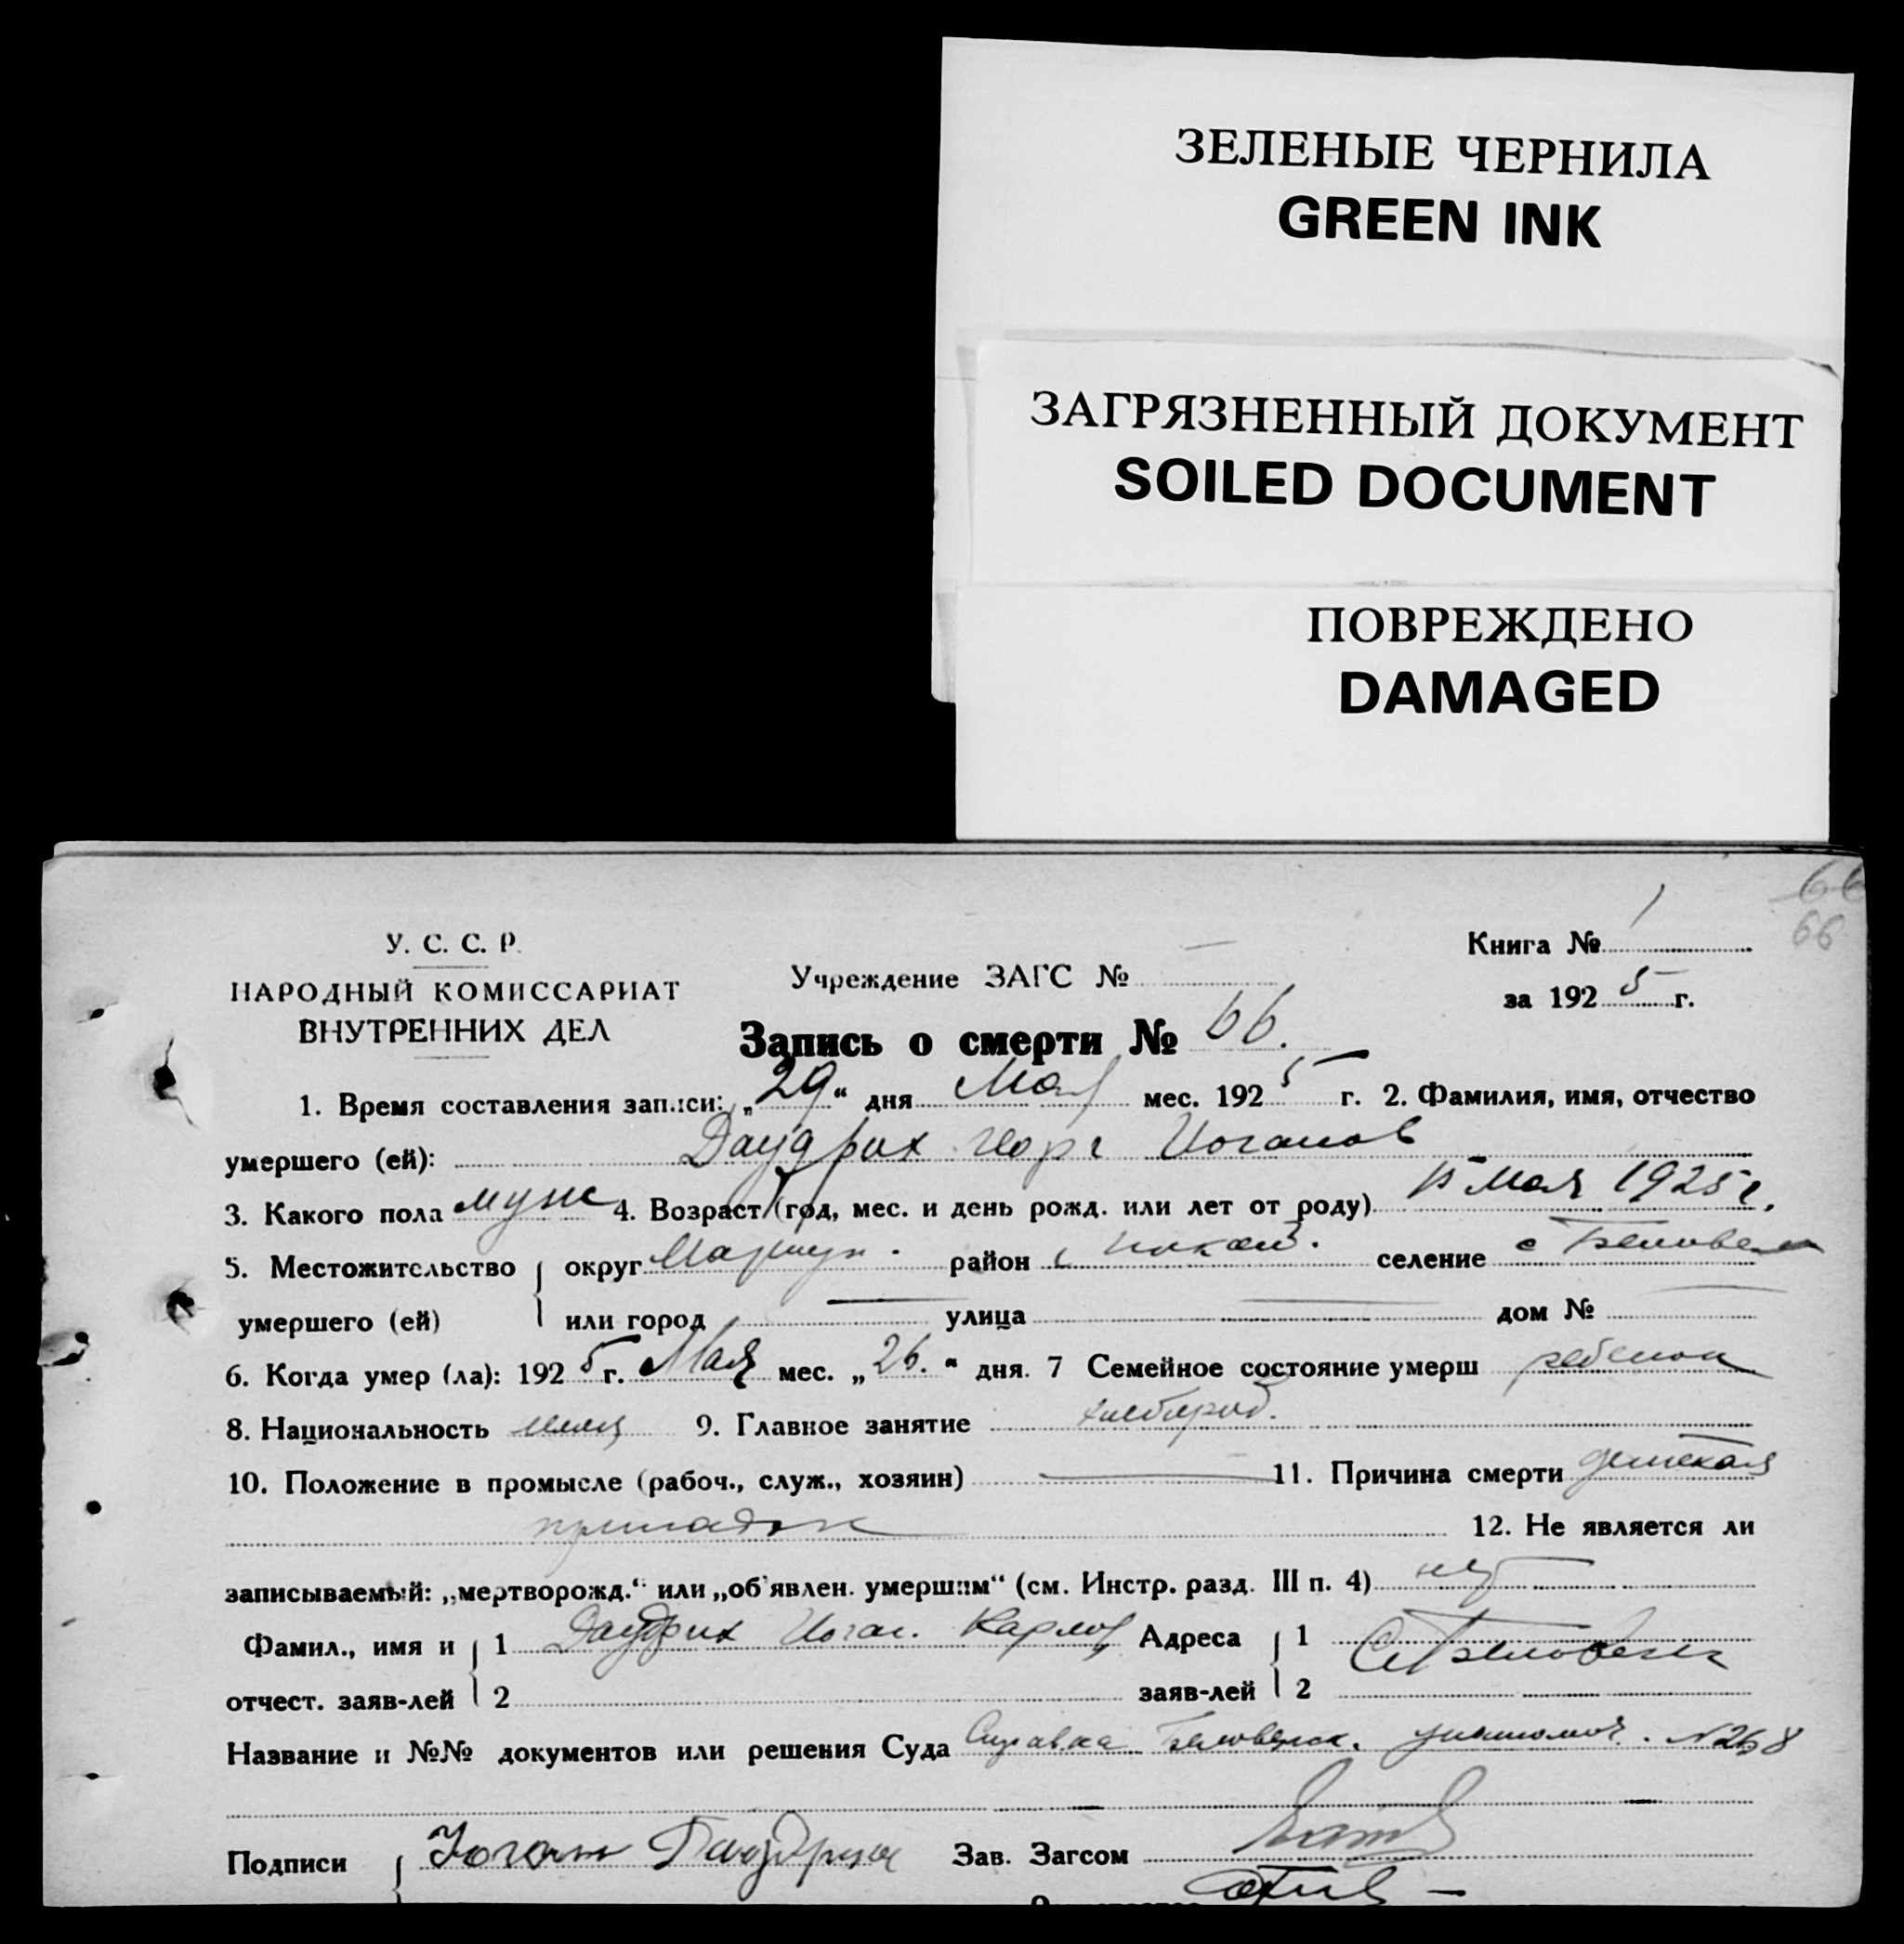 ЗЕЛЕНЫЕ ЧЕРНИЛА
GREEN INK
ЗАГРЯЗНЕННЫЙ ДОКУМЕНТ
SOILED DOCUMENT
ПОВРЕЖДЕНО
DAMAGED
66
66
У. С. С. Р.
НАРОДНЫЙ КОМИССАРИАТ
ВНУТРЕННИХ ДЕЛ
Учреждение ЗАГС № —
Книга № 1
за 1925 г.
Запись о смерти № 66.
1. Время составления записи: „29“ дня Мая мес. 1925 г. 2. Фамилия, имя, отчество
умершего (ей): Даудрих Георг Иоганов
3. Какого пола муж 4. Возраст (год, мес. и день рожд. или лет от роду) 15 мая 1925 г.
5. Местожительство округ Мариуп. район селение с
умершего (ей) или город — улица — дом № —
6. Когда умер (ла): 1925 г. Мая мес. „26.“ дня. 7 Семейное состояние умерш ребенок
8. Национальность немец 9. Главное занятие хлебороб.
10. Положение в промысле (рабоч., служ., хозяин) — 11. Причина смерти детская
припадок 12. Не является ли
записываемый: „мертворожд.“ или „об'явлен. умершим“ (см. Инстр. разд. III п. 4) нет
Фамил., имя и 1 Даудрих Иоган. Карлов Адреса 1
отчест. заяв-лей 2 заяв-лей 2
Название и №№ документов или решения Суда Справка № 268
Подписи Иоган Зав. Загсом